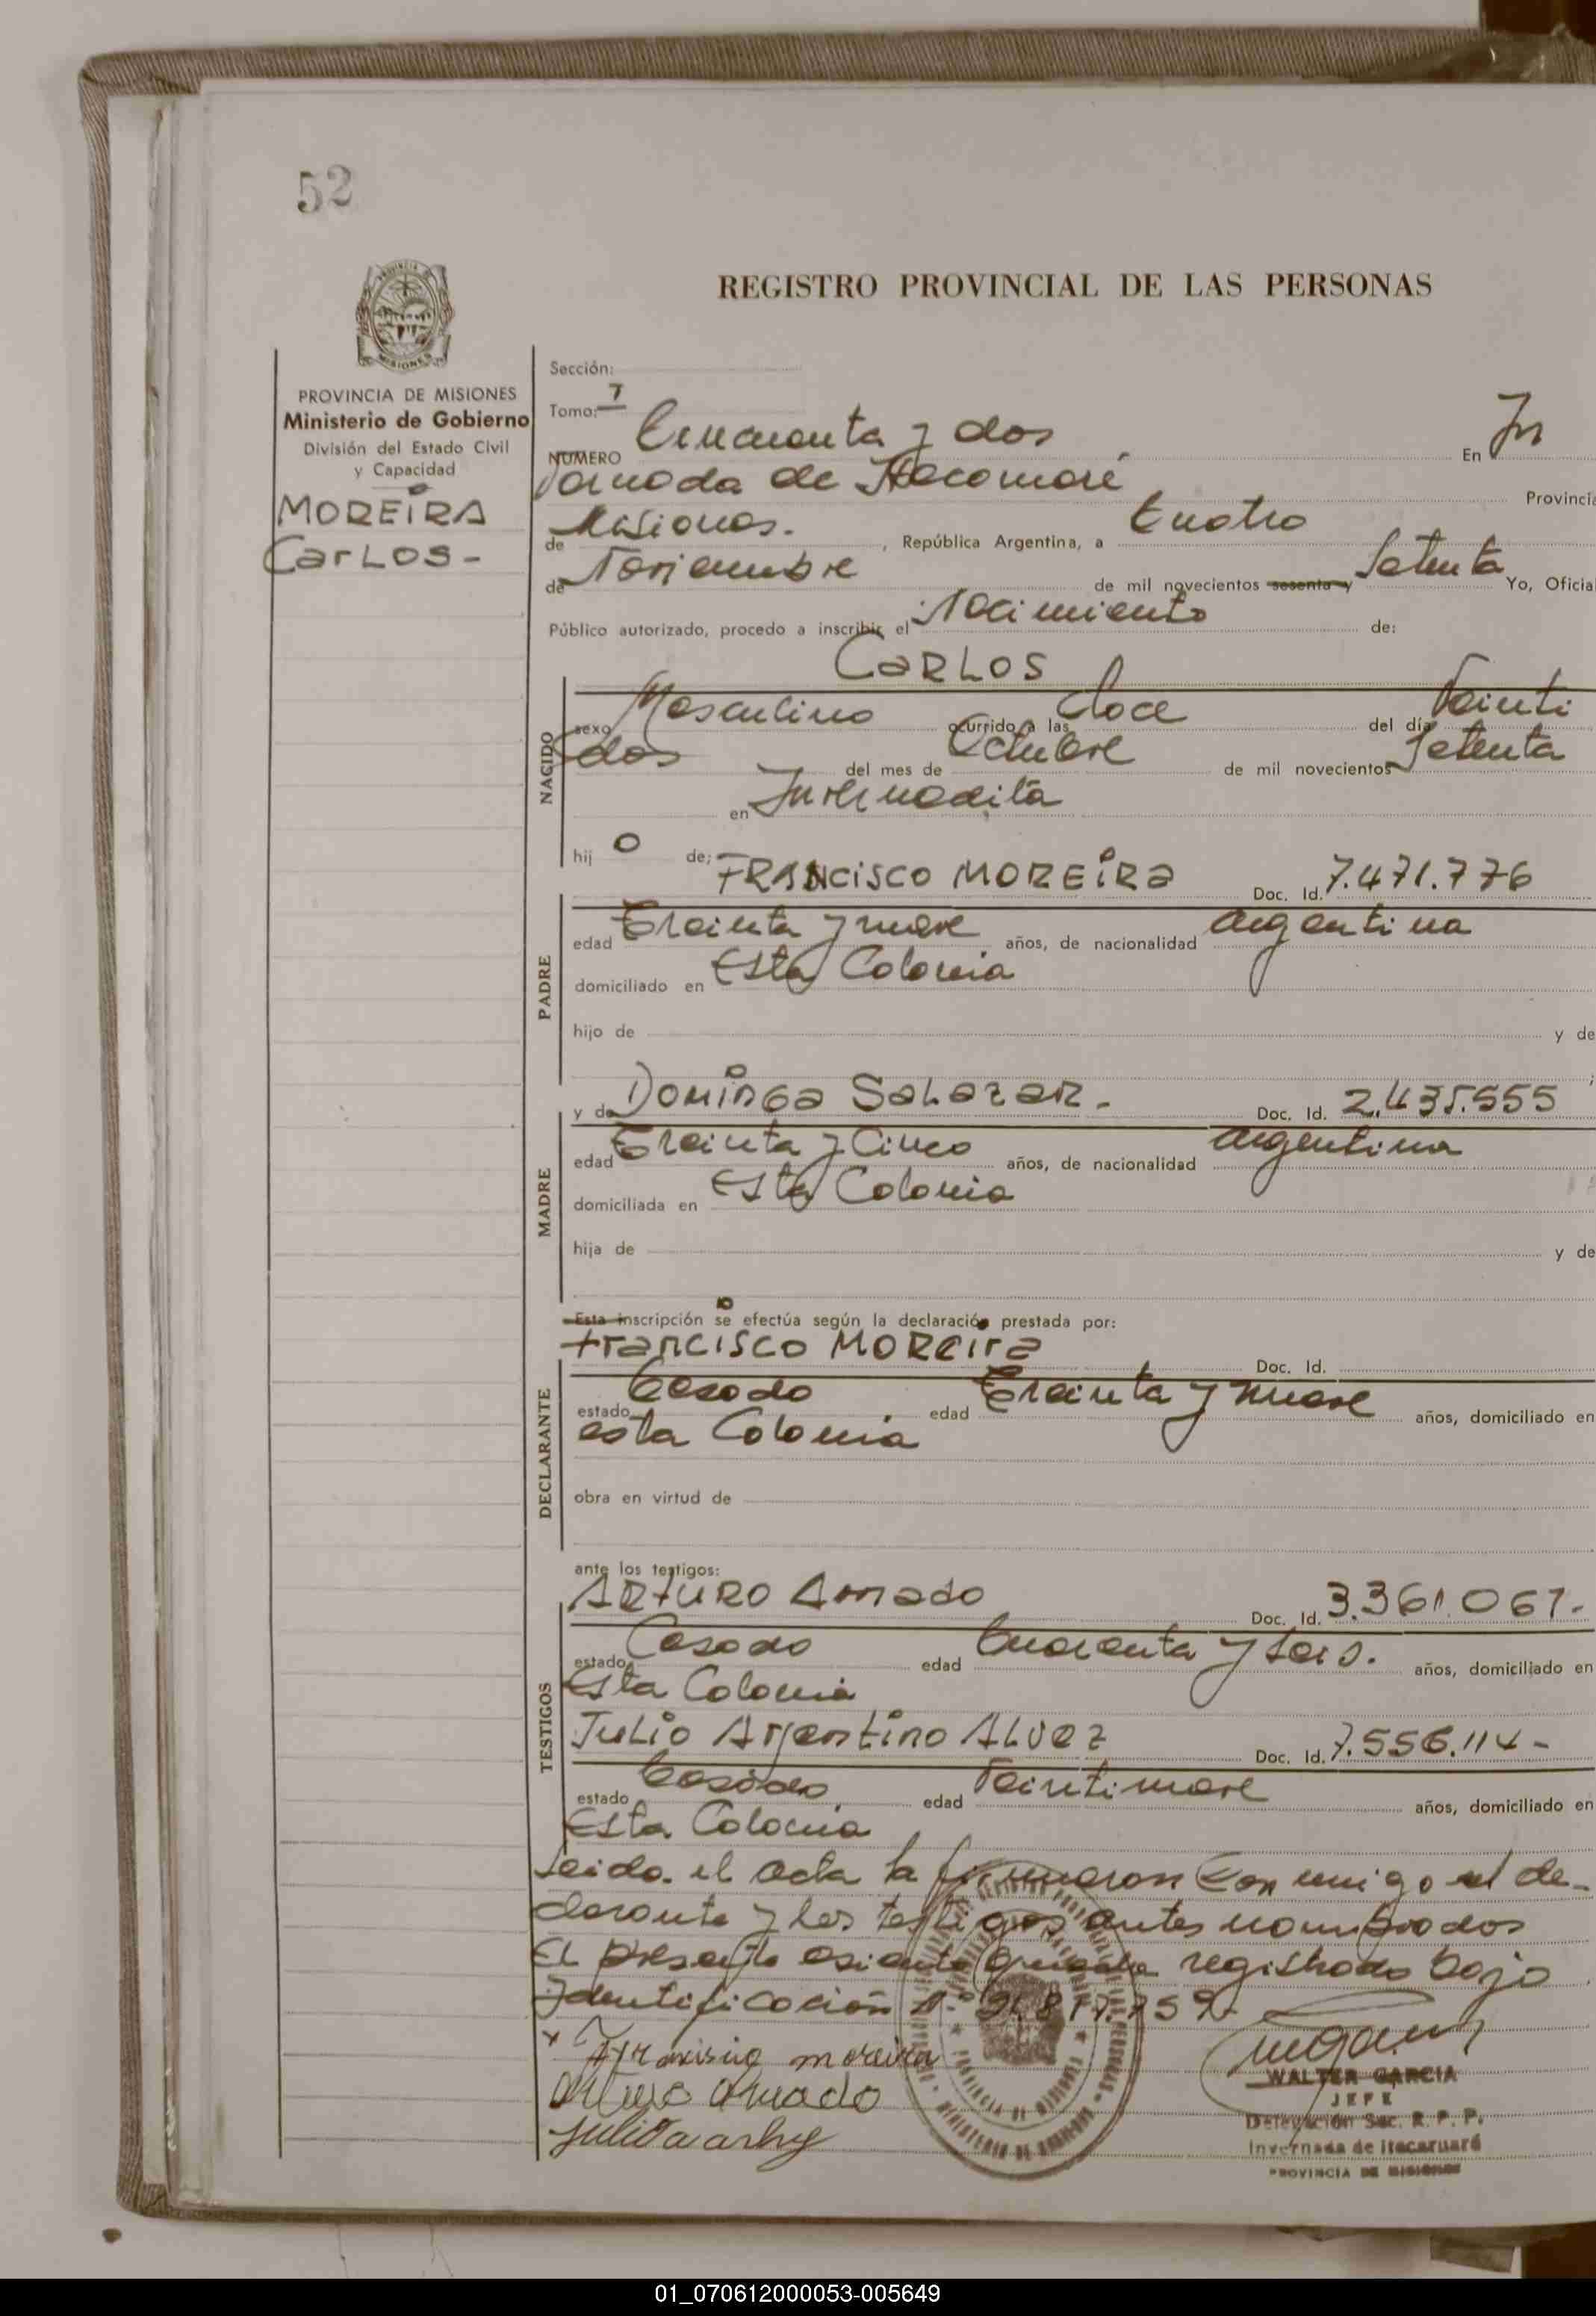 52
REGISTRO PROVINCIAL DE LAS PERSONAS
MISIONES
PROVINCIA DE MISIONES
Ministerio de Gobierno
División del Estado Civil
y Capacidad
MOREIRA
CARLOS-
Sección:
Tomo: 7
NUMERO Cincuenta y dos En In
vernada de Itacaruaré Provincia
de Misiones. , República Argentina, a Cuatro
de Noviembre de mil novecientos sesenta y Setenta Yo, Oficial
Público autorizado, procedo a inscribir el Nacimiento de:
CARLOS
NACIDO
sexo Masculino ocurrido a las doce del día Veinti
dos del mes de Octubre de mil novecientos Setenta
en Invernadita
hij o de: FRANCISCO MOREIRA Doc. Id. 7.471.776
PADRE
edad Treinta y nueve años, de nacionalidad argentina
domiciliado en Esta Colonia
hijo de y de
;
y de DOMINGA SALAZAR. Doc. Id. 2.435.555
MADRE
edad Treinta y Cinco años, de nacionalidad argentina
domiciliada en Esta Colonia
hija de y de
Esta inscripción se efectúa según la declaración prestada por:
FRANCISCO MOREIRA Doc. Id.
DECLARANTE
estado Casado edad Treinta y nueve años, domiciliado en
esta Colonia
obra en virtud de
ante los testigos:
ARTURO Amado Doc. Id. 3.361.061.-
TESTIGOS
estado Casado edad Cuarenta y seis. años, domiciliado en
Esta Colonia
JULIO Argentino ALVEZ Doc. Id. 7.556.114-
estado Casado, edad Veintinueve años, domiciliado en
Esta Colonia
Leida el acta la firmaron conmigo el de-
clarante y los testigos antes nombrados
El presente asiento queda registrado bajo
Identificación Nº 21.817.759.
x Francisco moreira
Arturo Amado
Julio
WALTER GARCIA
JEFE
Delegación Sec. R. P. P.
Invernada de Itacaruaré
PROVINCIA DE MISIONES
01_070612000053-005649